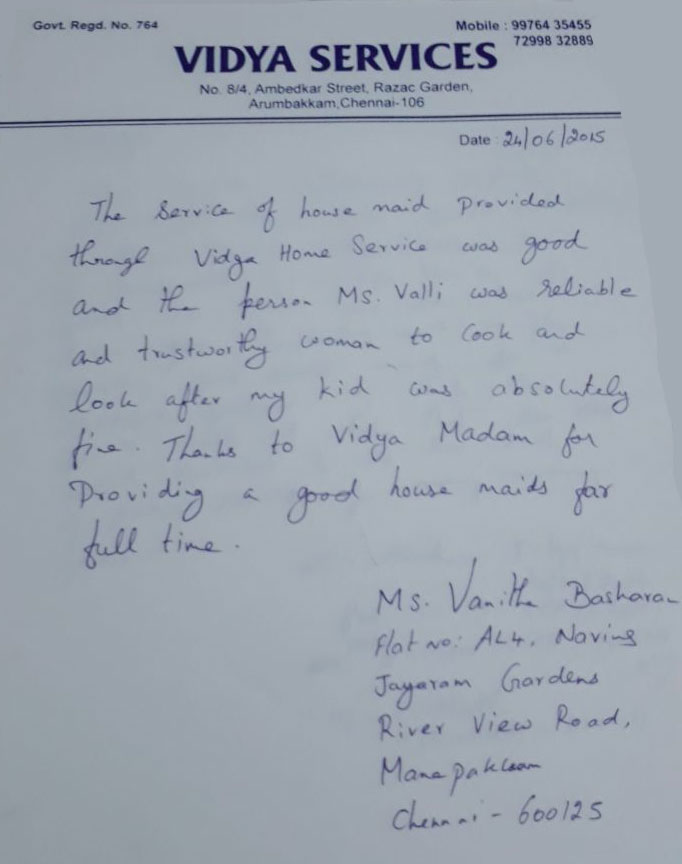 Govt. Regd. No. 764
Mobile : 99764 35455
72998 32889
VIDYA SERVICES
No. 8/4, Ambedkar Street, Razac Garden,
Arumbakkam,Chennai-106
Date : 24/06/2015
The Service of house maid provided
through Vidya Home Service was good
and the person Ms. Valli was reliable
and trustworthy woman to Cook and
look after my kid was absolutely
fine. Thanks to Vidya Madam for
Providing a good house maids for
full time.
Ms. Vanitha Basharan
Flat no: AL4, Navins
Jayaram Gardens
River View Road,
Manapakkam
Chennai - 600125